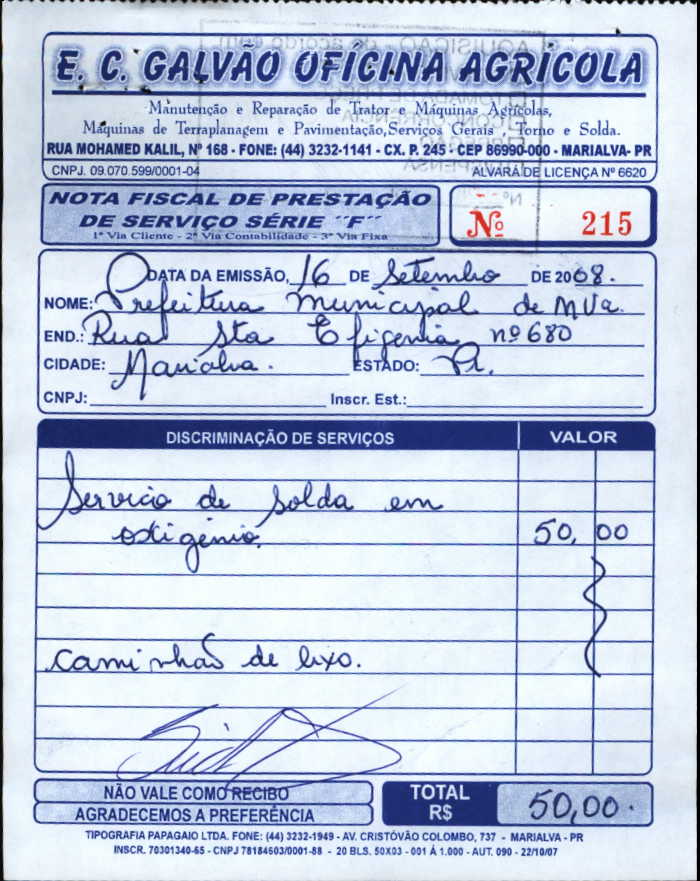 E. C. GALVÃO OFICINA AGRÍCOLA
Manutenção e Reparação de Trator e Máquinas Agrícolas,
Máquinas de Terraplanagem e Pavimentação,Serviços Gerais , Torno e Solda.
RUA MOHAMED KALIL, Nº 168 - FONE: (44) 3232-1141 - CX. P. 245 - CEP 86990-000 - MARIALVA- PR
CNPJ. 09.070.599/0001-04 ALVARÁ DE LICENÇA Nº 6620
NOTA FISCAL DE PRESTAÇÃO
DE SERVIÇO SÉRIE ´´F´´
1ª Via Cliente - 2ª Via Contabilidade - 3ª Via Fixa
Nº 215
DATA DA EMISSÃO, 16 DE Setembro DE 2008.
NOME: Prefeitura Municipal de MVa.
END.: Rua Sta Efigenia nº 680
CIDADE: Marialva. ESTADO: Pr.
CNPJ: Inscr. Est.:
DISCRIMINAÇÃO DE SERVIÇOS VALOR
Servicio de Solda em
oxigênio. 50,00
caminhão de lixo.
NÃO VALE COMO RECIBO
AGRADECEMOS A PREFERÊNCIA
TOTAL
R$ 50,00.
TIPOGRAFIA PAPAGAIO LTDA. FONE: (44) 3232-1949 - AV. CRISTÓVÃO COLOMBO, 737 - MARIALVA - PR
INSCR. 70301340-65 - CNPJ 78184603/0001-88 - 20 BLS. 50X03 - 001 Á 1.000 - AUT. 090 - 22/10/07